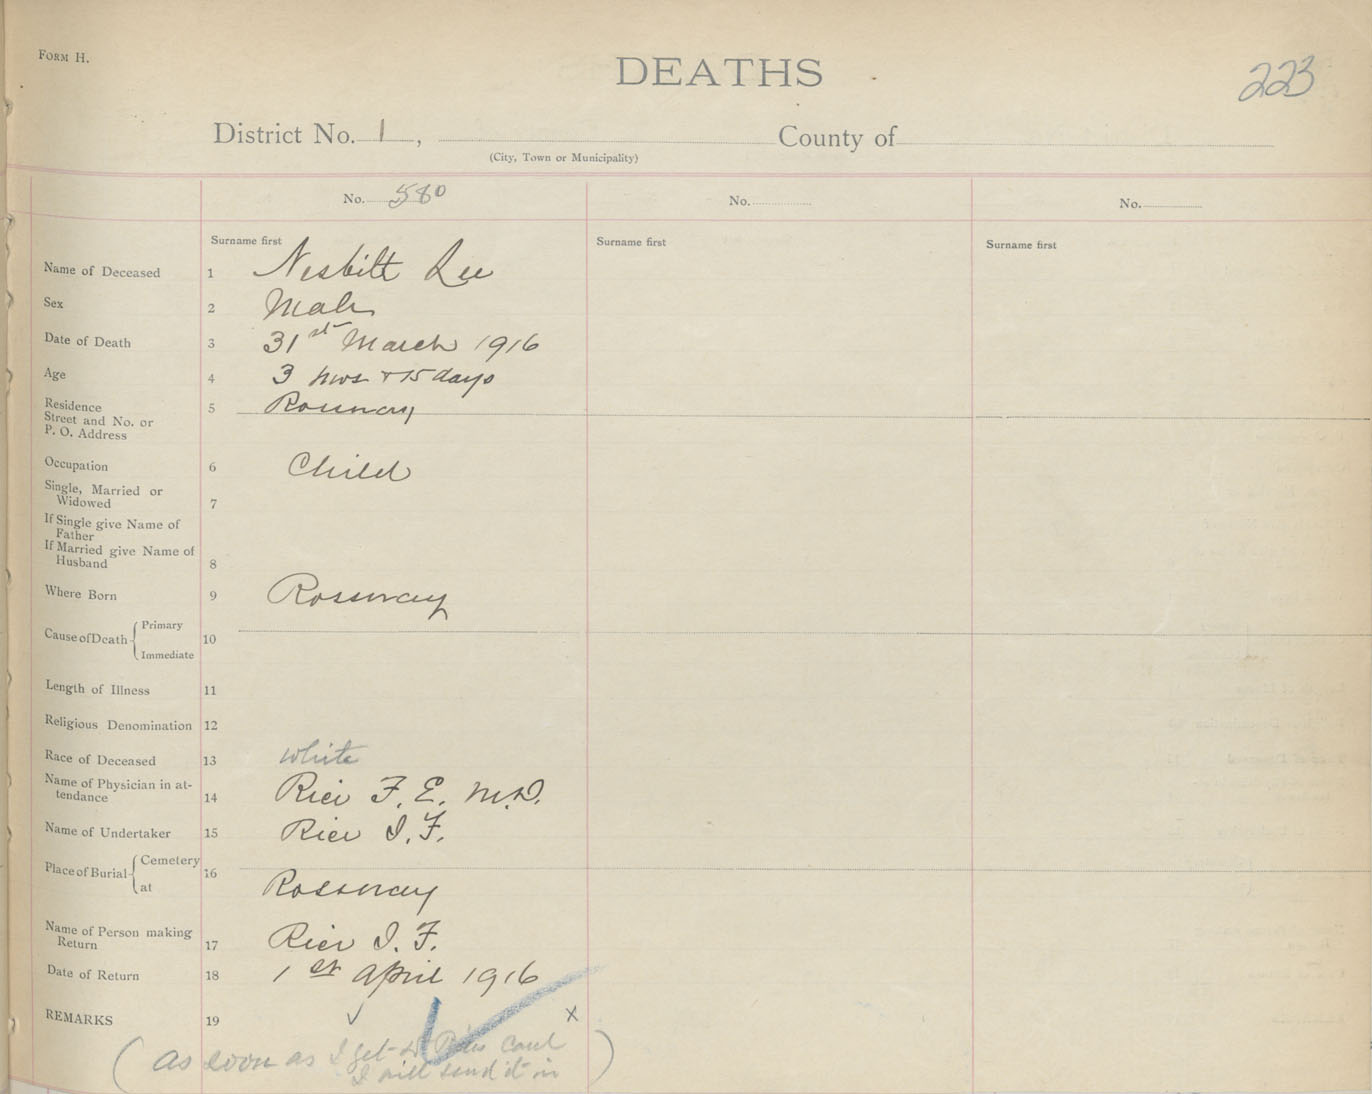 FORM H.
DEATHS
223
District No. 1, County of
(City, Town or Municipality)
No. 580 No. No.
Surname first Surname first Surname first
Name of Deceased 1 Nesbitt Lee
Sex 2 Male
Date of Death 3 31st March 1916
Age 4 3 mos + 15 days
Residence
Street and No. or
P. O. Address 5 Rossway
Occupation 6 Child
Single, Married or
Widowed 7
If Single give Name of
Father
If Married give Name of
Husband 8
Where Born 9 Rossway
Cause of Death Primary
Immediate 10
Length of Illness 11
Religious Denomination 12
Race of Deceased 13 White
Name of Physician in at-
tendance 14 Rice F. E. M.D.
Name of Undertaker 15 Rice I. F.
Place of Burial Cemetery
at 16 Rossway
Name of Person making
Return 17 Rice I. F.
Date of Return 18 1st April 1916
REMARKS 19 x
(As soon as I get Dr Rices card
I will send it in)